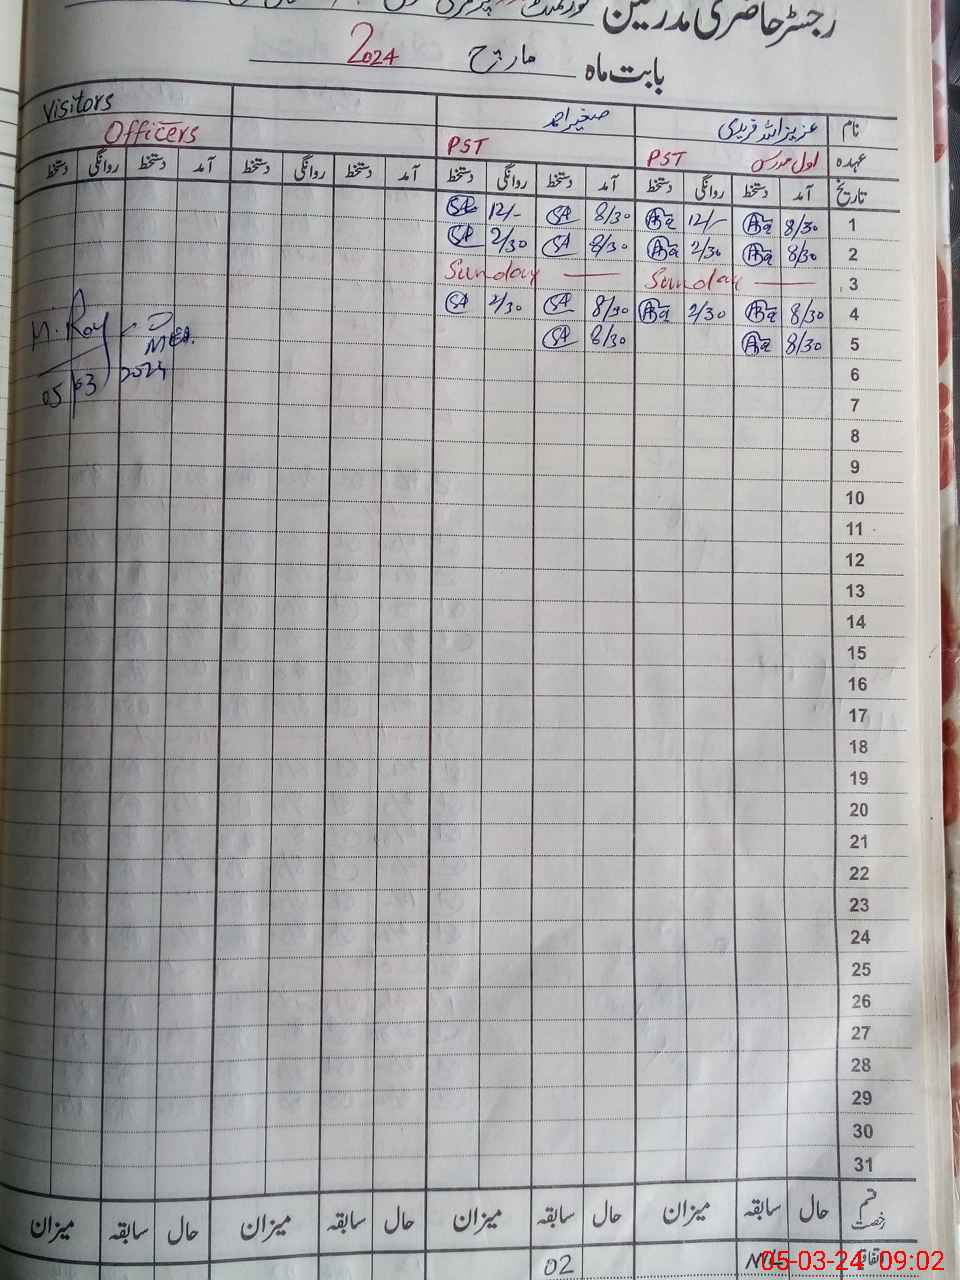 رجسٹر حاضری مدرسین
بابت ماہ مارچ 2024
نام عزیز اللہ فریدی صغیر احمد Visitors
عہدہ اول مدرس PST PST Officers
تاریخ آمد دستخط روانگی دستخط آمد دستخط روانگی دستخط آمد دستخط روانگی دستخط آمد دستخط روانگی دستخط
1 8/30 12/- 8/30 SA 12/- SA
2 8/30 2/30 8/30 SA 2/30 SA
3 Sunday Sunday
4 8/30 2/30 8/30 SA 2/30 SA
5 8/30 8/30 SA
MEA.
05/03/2024
6
7
8
9
10
11
12
13
14
15
16
17
18
19
20
21
22
23
24
25
26
27
28
29
30
31
قسم رخصت حال سابقہ میزان حال سابقہ میزان حال سابقہ میزان حال سابقہ میزان
02
05-03-24 09:02